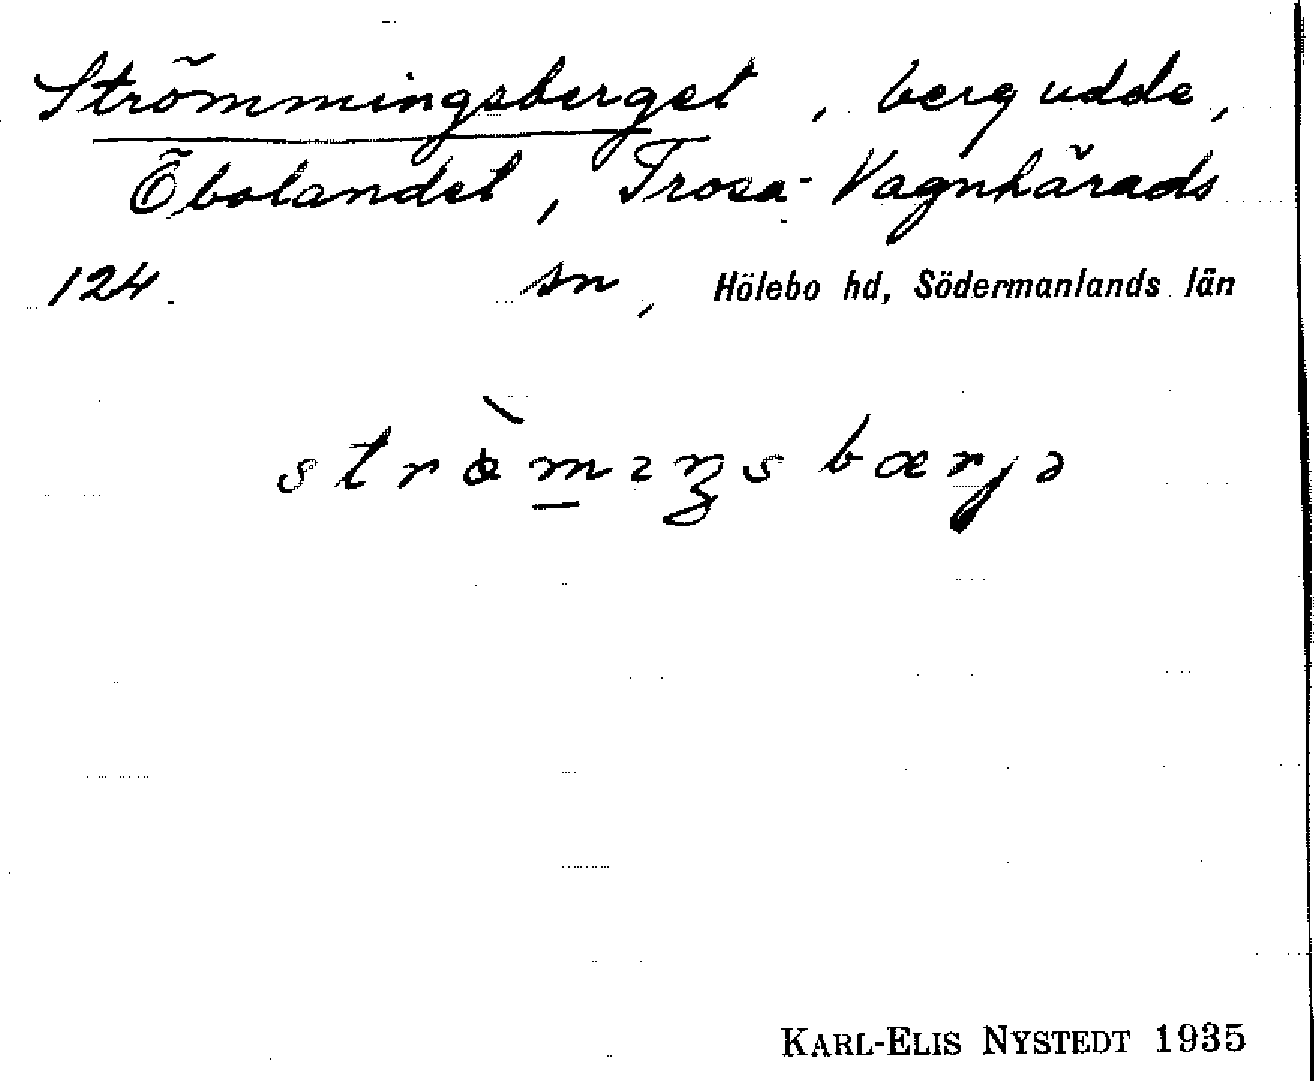 Strömmingsberget, bergudde,
Öbolandet, Trosa-Vagnhärads
124. sn, Hölebo hd, Södermanlands län
KARL-ELIS NYSTEDT 1935